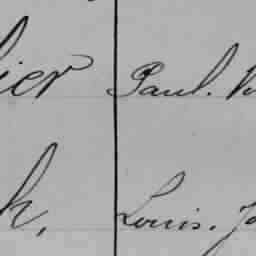 ier Paul. V
k, Louis. Jo